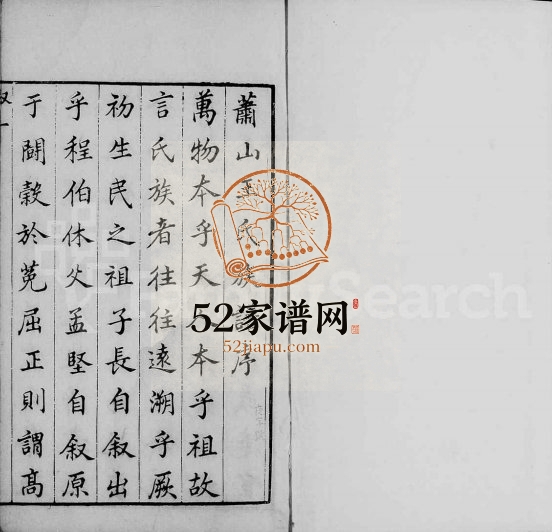 蕭山王氏族序
萬物本乎天本乎祖故
言氏族者往往遠溯乎厥
初生民之祖子長自叙出
乎程伯休父孟堅自叙原
于鬪穀於菟屈正則謂高
52家谱网
52jiapu.com
Search